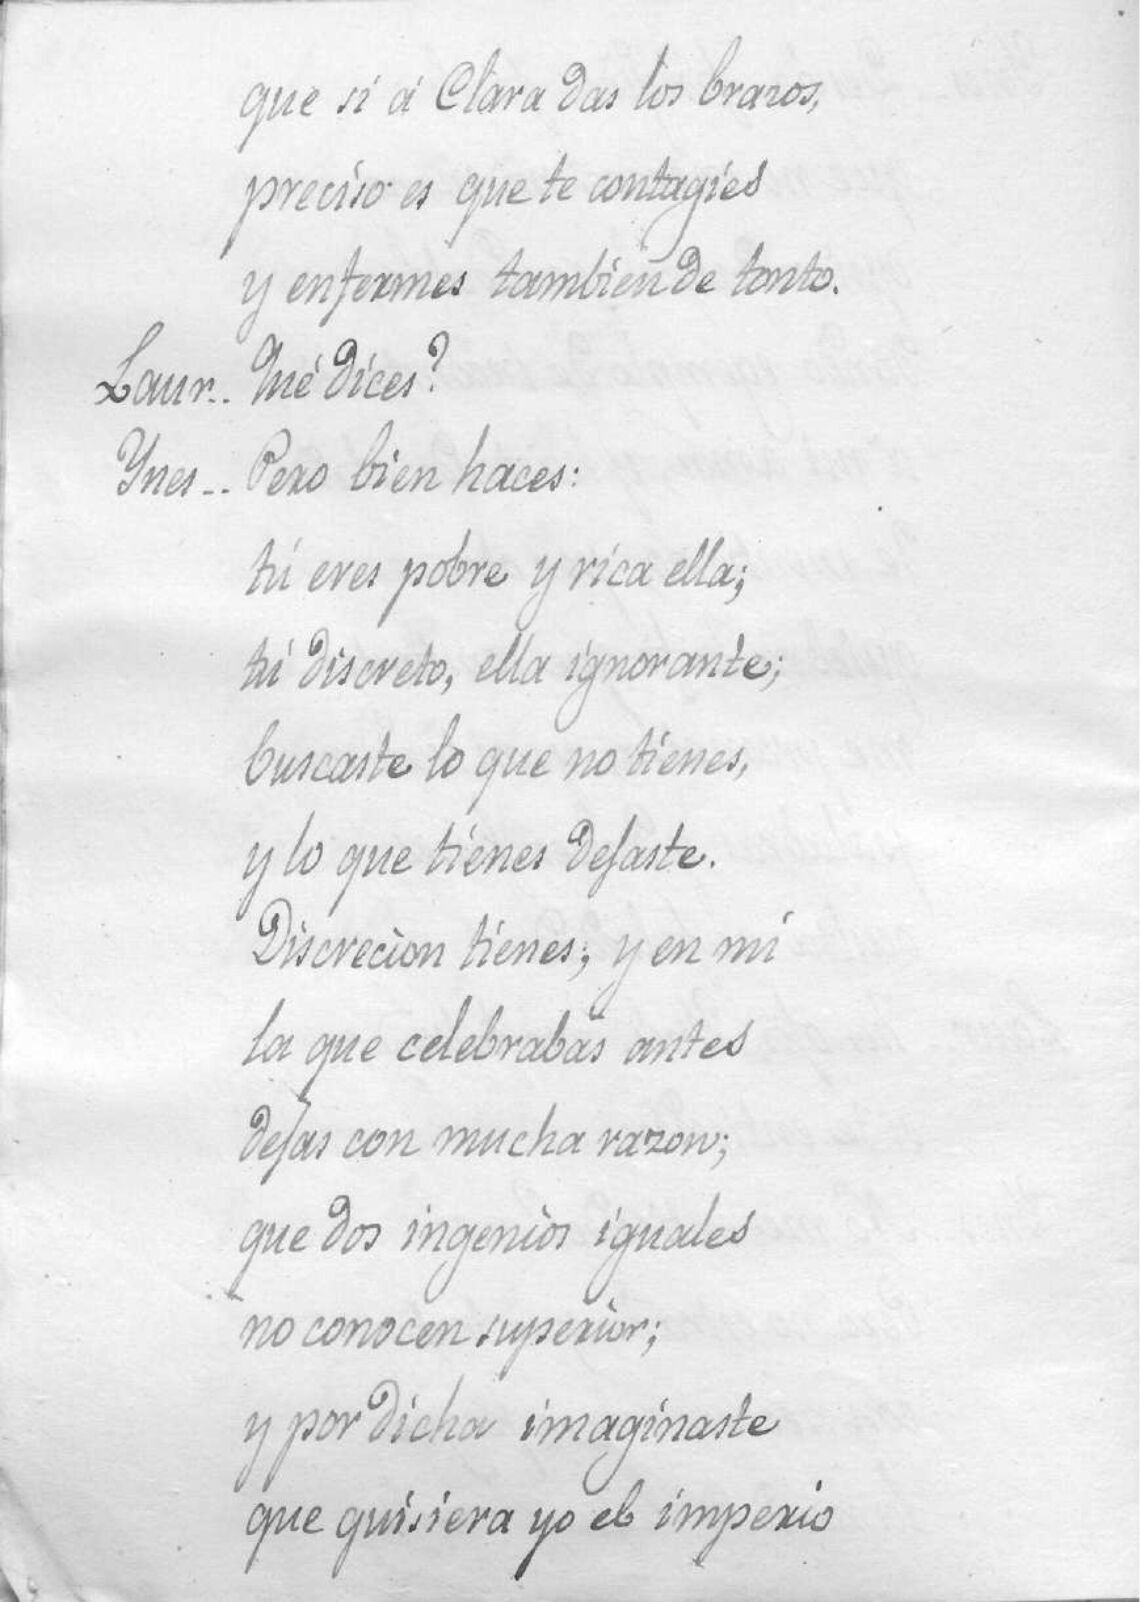 que si á Clara das los brazos,
preciso es que te contagies
y enfermes tambien de tonto.
Laur.. Qué dices?
Ynes-- Pero bien haces:
tú eres pobre y rica ella;
tú discreto, ella ignorante;
buscaste lo que no tienes,
y lo que tienes dejaste.
Discrecion tienes; y en mi
la que celebrabas antes
dejas con mucha razon;
que dos ingenios iguales
no conocen superior;
y por dicha imaginaste
que quisiera yo el imperio